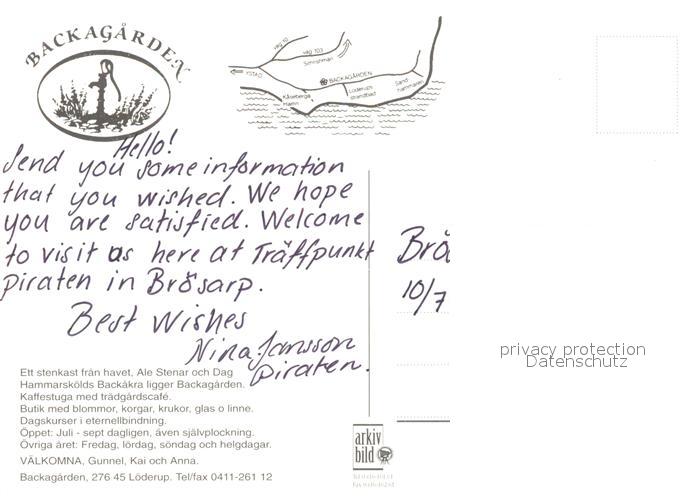 BACKAGÅRDEN
väg 10
väg 103
Simrishman
YSTAD
BACKAGÅRDEN
Kåseberga
Hamn
Löderups
strandbad
Sand-
hammaren
Hello!
Send you some information
that you wished. We hope
you are satisfied. Welcome
to visit us here at Träffpunkt
piraten in Brösarp.
Best Wishes
Nina Jansson
piraten.
Brö
10/7
privacy protection
Datenschutz
Ett stenkast från havet, Ale Stenar och Dag
Hammarskölds Backåkra ligger Backagården.
Kaffestuga med trädgårdscafé.
Butik med blommor, korgar, krukor, glas o linne.
Dagskurser i eternellbindning.
Öppet: Juli - sept dagligen, även självplockning.
Övriga året: Fredag, lördag, söndag och helgdagar.
VÄLKOMNA, Gunnel, Kai och Anna.
Backagården, 276 45 Löderup. Tel/fax 0411-261 12
arkiv
bild